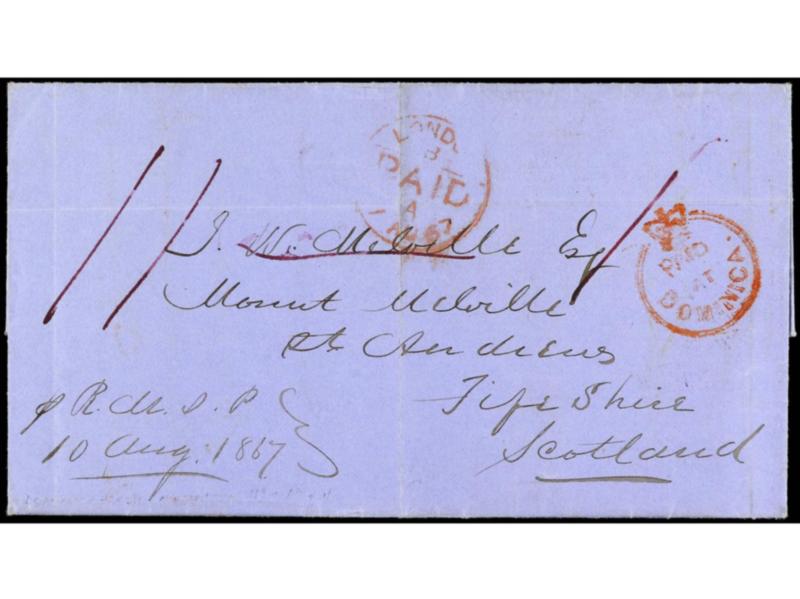 LOND
PAID
PAID
AT
DOMINICA
J. W. Melville Esq
Mount Melville
St. Andrews
Fife Shire
Scotland
p R. M. S. P.
10 Aug. 1867